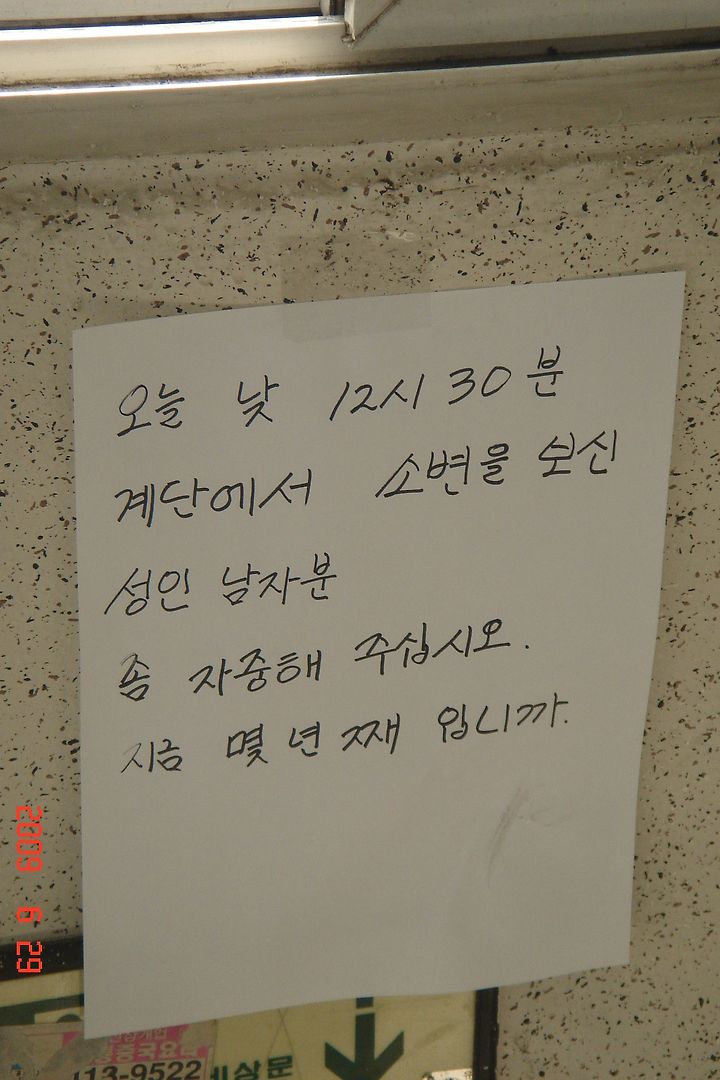 오늘 낮 12시 30분
계단에서 소변을 보신
성인 남자분
좀 자중해 주십시오.
지금 몇 년 째 입니까.
2009 6 29
113-9522
비상문